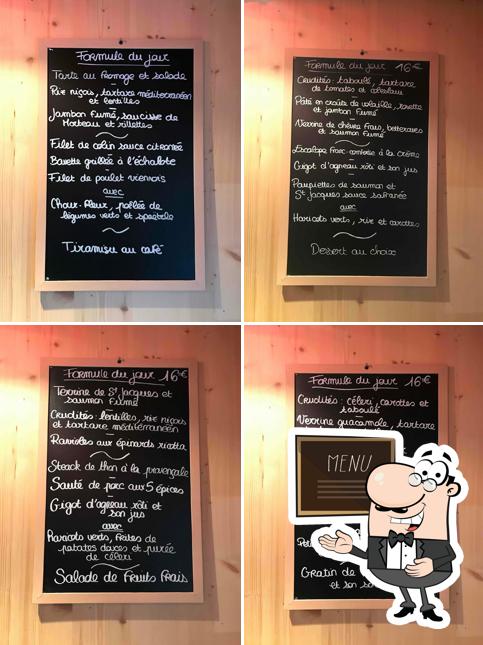 Formule du jour
Tarte au fromage et salade
Riz niçois, tartare méditerranéen
et lentilles
Jambon fumé, saucisse de
Morteau et rillettes
Filet de colin sauce citronée
Bavette grillée à l'échalote
Filet de poulet viennois
avec
Chou-fleur, poêlée de
légumes verts et spaetzle
Tiramisu au café
Formule du jour 16€
Crudités: taboulé, tartare
de tomates et coleslaw
Pâté en croûte de volaille, rosette
et jambon fumé
Verrine de chèvre frais, betteraves
et saumon fumé
Escalope franc-comtoise à la crème
Gigot d'agneau rôti et son jus
Paupiettes de saumon et
St Jacques sauce safranée
avec
Haricots verts, riz et carottes
Dessert au choix
Formule du jour 16€
Terrine de St Jacques et
saumon fumé
Crudités: lentilles, riz niçois
et tartare méditerranéen
Ravioles aux épinards ricotta
Steack de thon à la provençale
Sauté de porc aux 5 épices
Gigot d'agneau rôti et
son jus
avec
Haricots verts, frites de
patates douces et purée
de céleri
Salade de fruits frais
Formule du jour 16€
Crudités: céleri, carottes et
taboulé
Verrine guacamole, tartare
MENU
Gratin de
et son